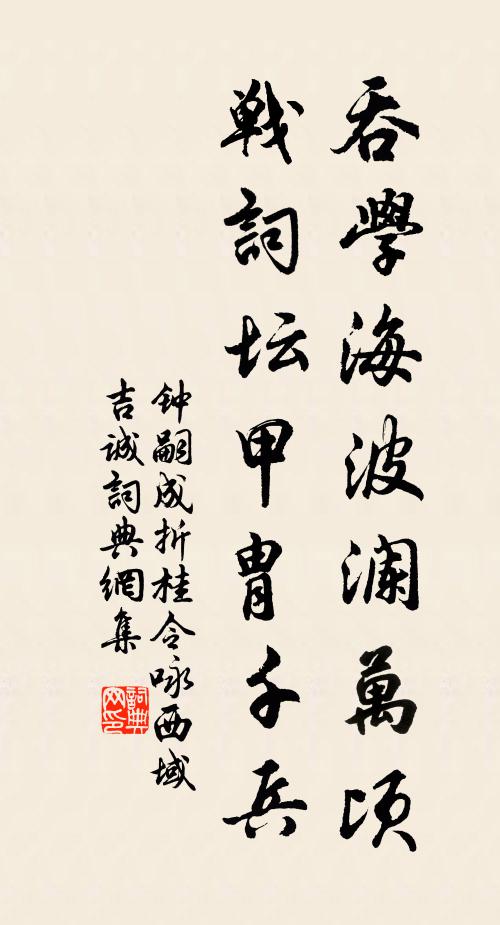 吞學海波瀾萬頃
戰詞坛甲胄千兵
钟嗣成折桂令咏西域
吉诚詞典網集
詞典網印